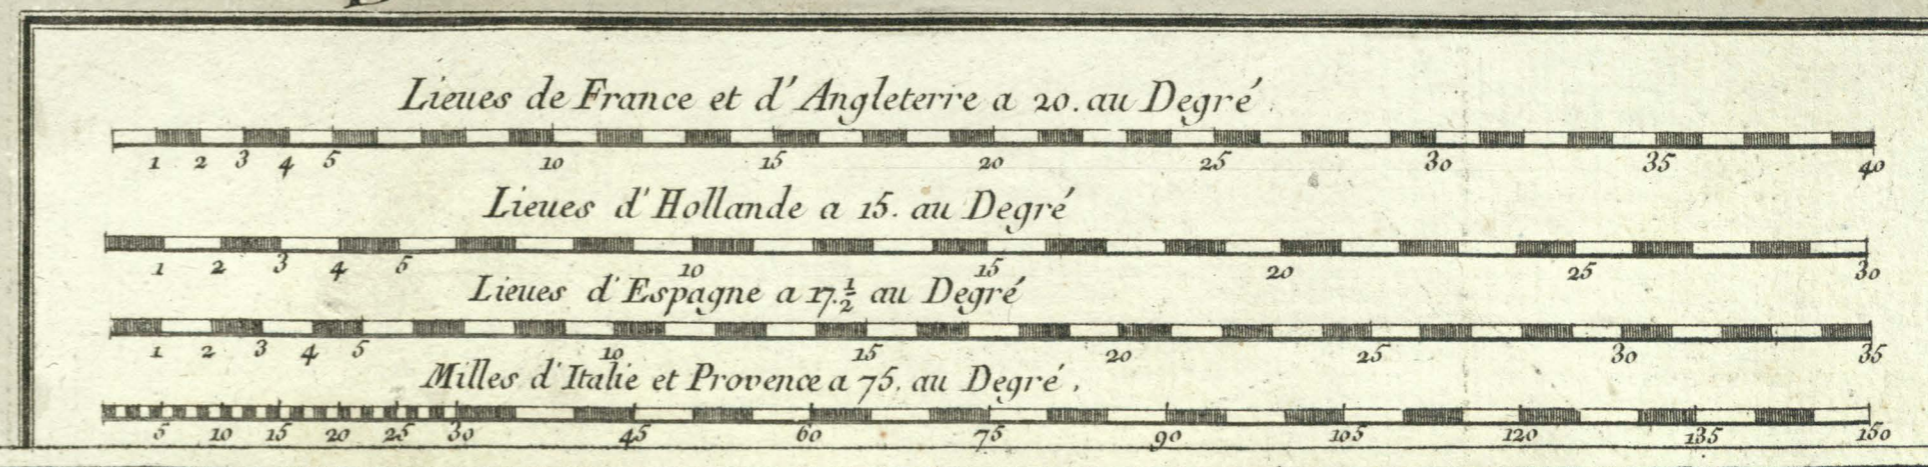 Lieues de France et d'Angleterre a 20. au Degré
1 2 3 4 5 10 15 20 25 30 35 40
Lieues d'Hollande a 15. au Degré
1 2 3 4 5 10 15 20 25 30
Lieues d'Espagne a 17.½ au Degré
1 2 3 4 5 10 15 20 25 30 35
Milles d'Italie et Provence a 75. au Degré.
5 10 15 20 25 30 45 60 75 90 105 120 135 150